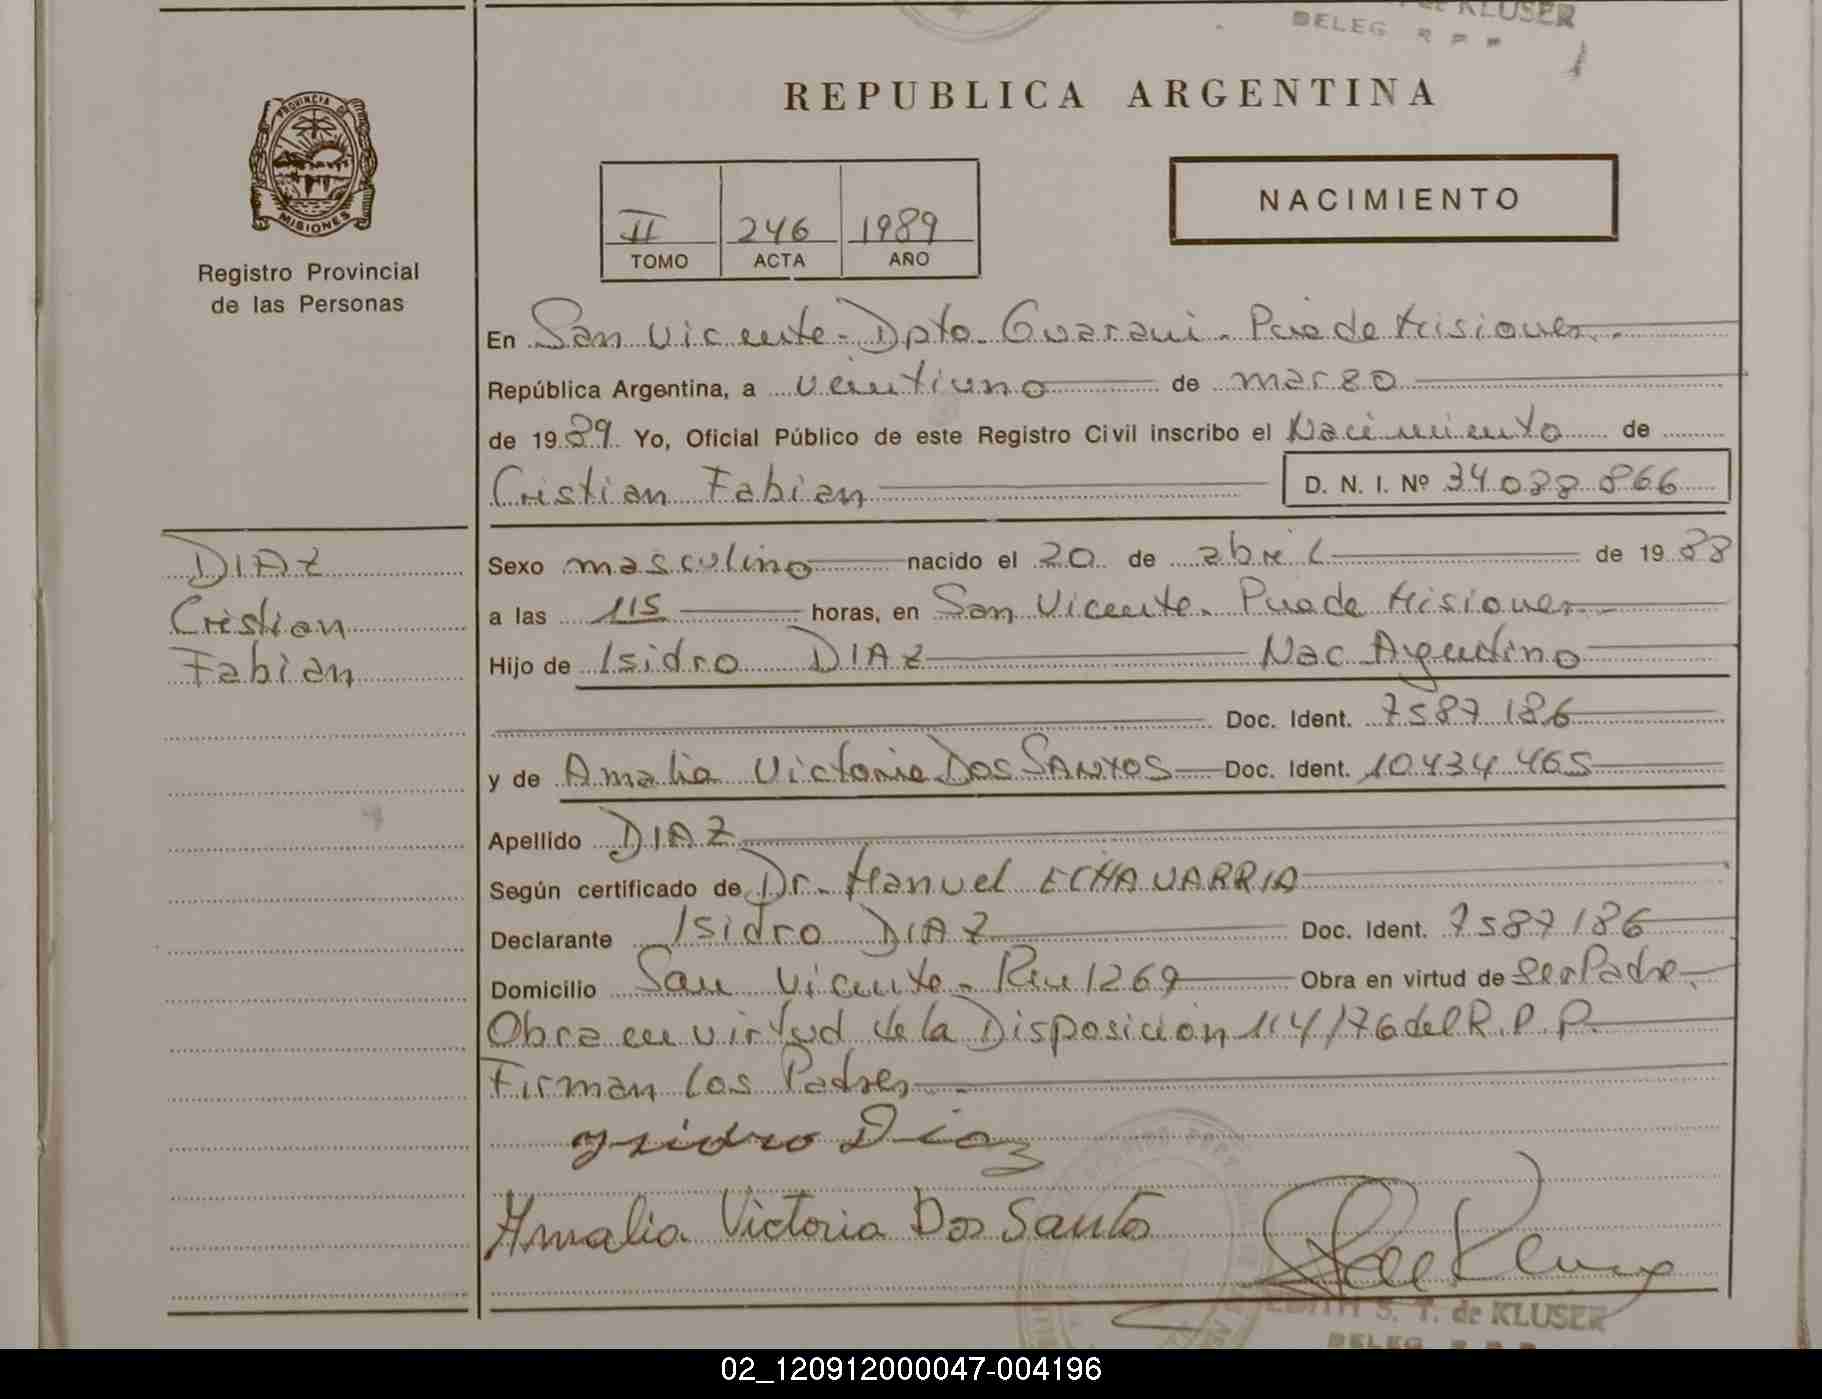 de KLUSER
DELEG R P P
REPUBLICA ARGENTINA
PROVINCIA DE
MISIONES
Registro Provincial
de las Personas
II 246 1989
TOMO ACTA AÑO
NACIMIENTO
En San Vicente - Dpto. Guarani - Pcia de Misiones
República Argentina, a veintiuno de marzo
de 1989 Yo, Oficial Público de este Registro Civil inscribo el Nacimiento de
Cristian Fabian D. N. I. Nº 34.088.866
DIAZ
Cristian
Fabian
Sexo masculino nacido el 20 de abril de 1988
a las 115 horas, en San Vicente. Pcia de Misiones
Hijo de Isidro DIAZ Nac Argentino
Doc. Ident. 7587186
y de Amalia Victoria Dos SANTOS Doc. Ident. 10.434.465
Apellido DIAZ
Según certificado de Dr. Manuel ECHAVARRIA
Declarante Isidro DIAZ Doc. Ident. 7587186
Domicilio San Vicente - 1269 Obra en virtud de ser Padre.
Obra en virtud de la Disposición 114/76 del R.P.P.
Firman los Padres
Ysidro Diaz
Amalia Victoria Dos Santos
EDITH S. T. de KLUSER
DELEG R P P
02_120912000047-004196